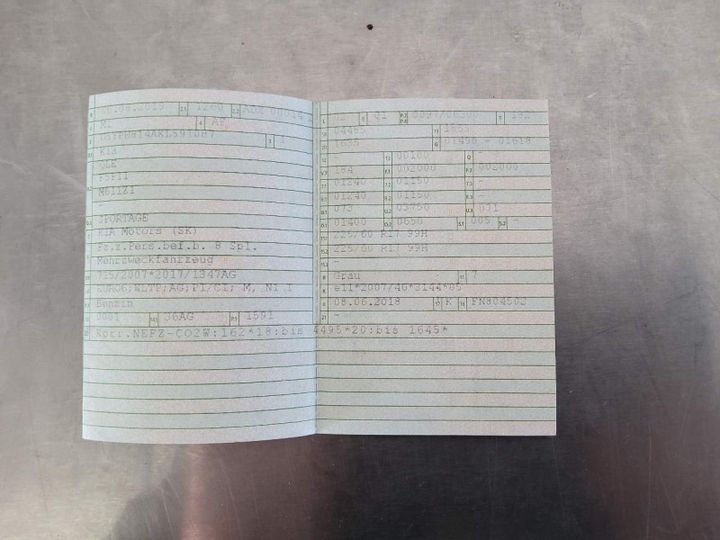 1200
M1
AF
Kia
QLE
F5P11
M61IZ1
-
SPORTAGE
KIA Motors (SK)
Fz.z.Pers.bef.b. 8 Spl.
Mehrzweckfahrzeug
715/2007*2017/1347AG
EURO6;WLTP;AG;PI/CI; M, N1 I
Benzin
0001 36AG 1591
Kor:.NEFZ-CO2W:162*18:bis 4495*20:bis 1645*
02 01 0097/06300 182
04485 1855
1635 01496 - 01618
00100
184 002000 002000
01240 01150 -
01240 01150 -
073 03750 071
01400 0650 005 -
225/60 R17 99H
225/60 R17 99H
-
Grau 7
e11*2007/46*3144*05
08.06.2018 K FN804502
-